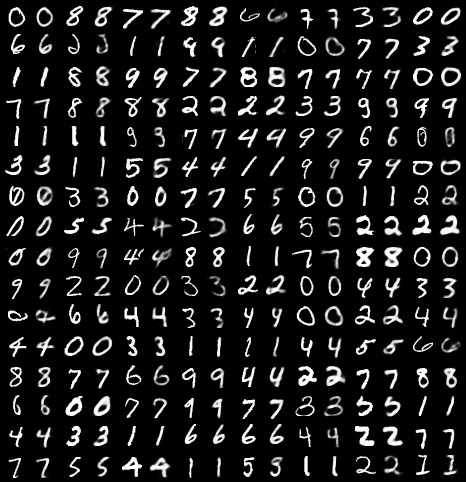 0 0 8 8 7 7 8 8 6 6 7 7 3 3 0 0
6 6 2 2 1 1 9 9 1 1 0 0 7 7 3 3
1 1 8 8 9 9 7 7 8 8 7 7 7 7 0 0
7 7 8 8 8 8 2 2 2 2 3 3 9 9 9 9
1 1 1 1 9 9 7 7 4 4 9 9 6 6 0 0
3 3 1 1 5 5 4 4 1 1 9 9 9 9 0 0
0 0 3 3 0 0 7 7 5 5 0 0 1 1 2 2
0 0 5 5 4 4 2 2 6 6 5 5 2 2 2 2
0 0 9 9 4 4 8 8 1 1 7 7 8 8 0 0
9 9 2 2 0 0 3 3 2 2 0 0 4 4 3 3
6 6 4 4 3 3 4 4 0 0 2 2 4 4
4 4 0 0 3 3 1 1 1 1 4 4 5 5 6 6
8 8 7 7 6 6 9 9 4 4 2 2 7 7 8 8
6 6 0 0 7 7 9 9 7 7 3 3 5 5 1 1
4 4 3 3 1 1 6 6 6 6 4 4 2 2 7 7
7 7 5 5 4 4 1 1 5 5 1 1 2 2 1 1